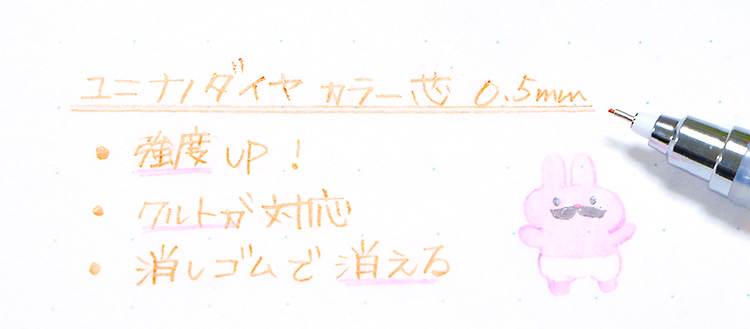 ユニナノダイヤ カラー芯 0.5mm
• 強度UP!
• クルトガ対応
• 消しゴムで消える